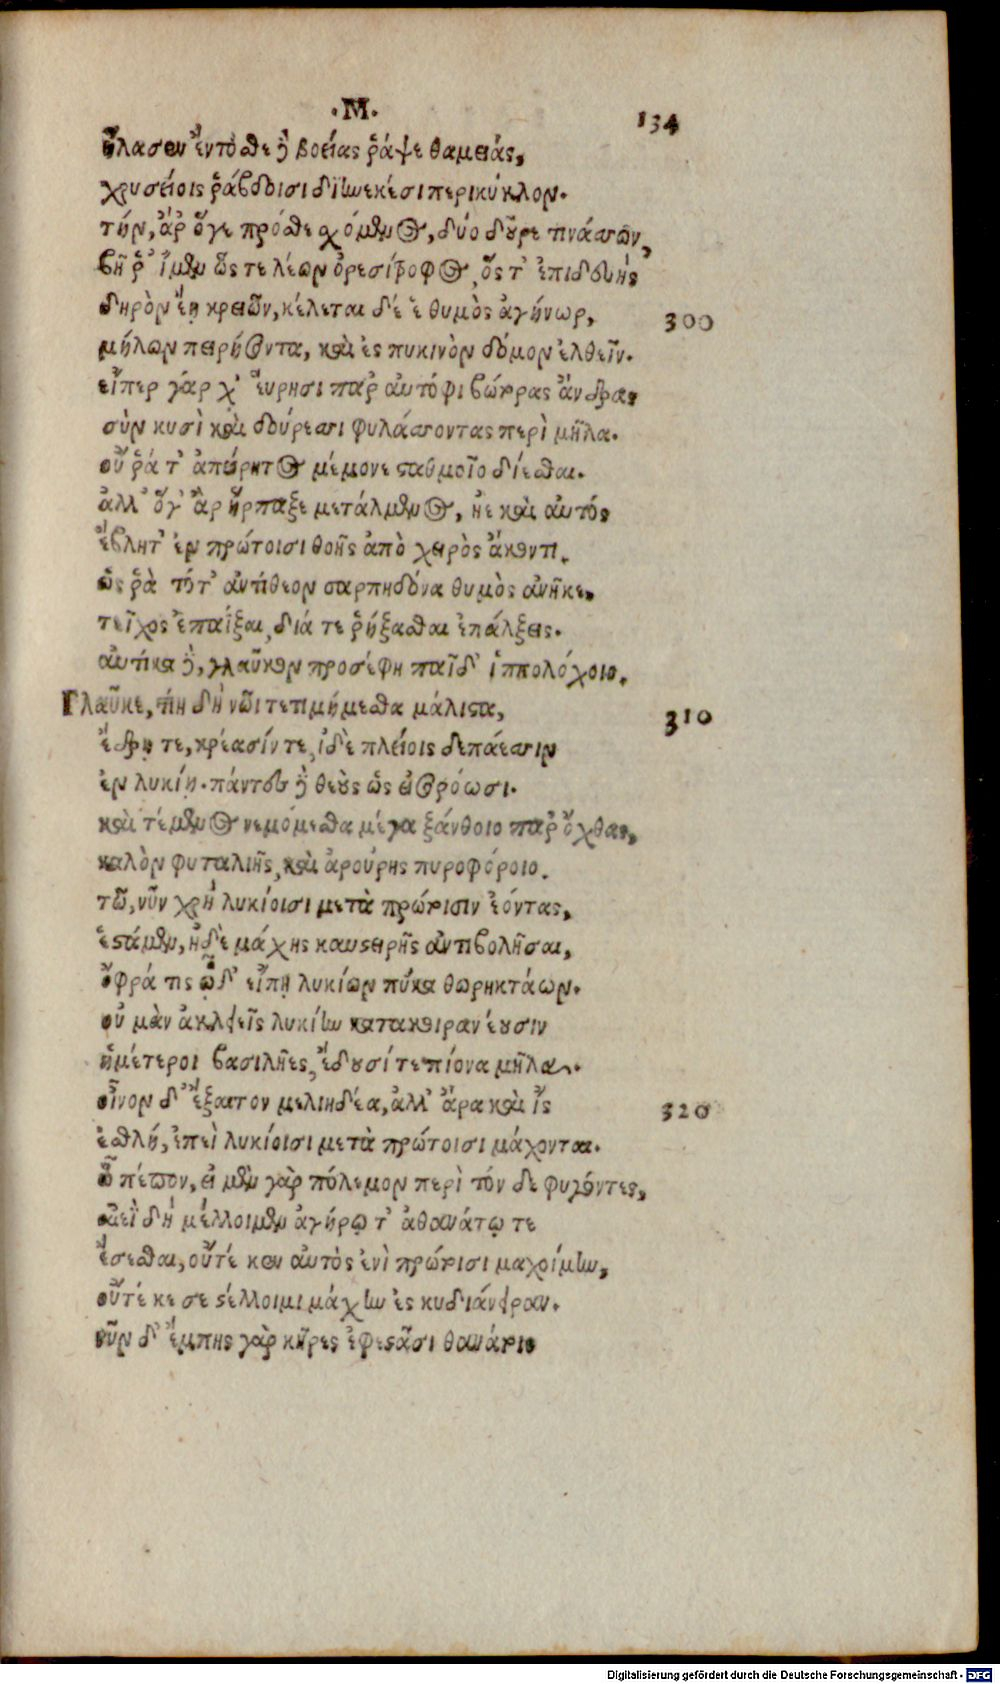 ·Μ·
134
ἤλασεν ἔντοσθε δὲ βοείας ῥάψε θαμειάς,
χρυσείοις ῥάβδοισι διηνεκέσι περικύκλον.
τήν, ἄρ ὅγε πρόσθε σχόμενος, δύο δοῦρε τινάσσων,
βῆ ῥ' ἴμεν ὥς τε λέων ὀρεσίτροφος, ὅς τ' ἐπιδευὴς
δηρὸν ἔῃ κρειῶν, κέλεται δέ ἑ θυμὸς ἀγήνωρ,
300
μήλων πειρήσοντα, καὶ ἐς πυκινὸν δόμον ἐλθεῖν.
εἴπερ γάρ χ' εὕρησι παρ' αὐτόφι βώτορας ἄνδρας
σὺν κυσὶ καὶ δούρεσσι φυλάσσοντας περὶ μῆλα.
οὔ ῥά τ' ἀπείρητος μέμονε σταθμοῖο δίεσθαι.
ἀλλ' ὅγ' ἂρ ἥρπαξε μετάλμενος, ἠὲ καὶ αὐτός
ἔβλητ' ἐν πρώτοισι θοῆς ἀπὸ χειρὸς ἄκοντι.
ὥς ῥὰ τότ' ἀντίθεον σαρπηδόνα θυμὸς ἀνῆκε,
τεῖχος ἐπαΐξαι, διά τε ῥήξασθαι ἐπάλξεις.
αὐτίκα δὲ, γλαῦκον προσέφη παῖδ' ἱππολόχοιο.
Γλαῦκε, τίη δὴ νῶι τετιμήμεσθα μάλιστα,
310
ἕδρῃ τε, κρέασίν τε, ἰδὲ πλείοις δεπάεσσιν
ἐν λυκίῃ. πάντες δὲ θεοὺς ὣς εἰσορόωσι.
καὶ τέμενος νεμόμεσθα μέγα ξάνθοιο παρ' ὄχθας,
καλὸν φυταλιῆς, καὶ ἀρούρης πυροφόροιο.
τῶ, νῦν χρὴ λυκίοισι μετὰ πρώτοισιν ἐόντας,
ἑστάμεν, ἠδὲ μάχης καυστειρῆς ἀντιβολῆσαι,
ὄφρά τις ὧδ' εἴπῃ λυκίων πύκα θωρηκτάων.
οὐ μὰν ἀκλεεῖς λυκίην κατακοιρανέουσιν
ἡμέτεροι βασιλῆες, ἔδουσί τε πίονα μῆλα.
οἶνον δ' ἔξαιτον μελιηδέα, ἀλλ' ἄρα καὶ ἲς
320
ἐσθλή, ἐπεὶ λυκίοισι μετὰ πρώτοισι μάχονται.
ὦ πέπον, εἰ μὲν γὰρ πόλεμον περὶ τόν δε φυγόντες,
αἰεὶ δὴ μέλλοιμεν ἀγήρῳ τ' ἀθανάτῳ τε
ἔσεσθαι, οὔτέ κεν αὐτὸς ἐνὶ πρώτοισι μαχοίμην,
οὔτέ κε σε στέλλοιμι μάχην ἐς κυδιάνειραν.
νῦν δ' ἔμπης γὰρ κῆρες ἐφεστᾶσι θανάτοιο
Digitalisierung gefördert durch die Deutsche Forschungsgemeinschaft - DFG